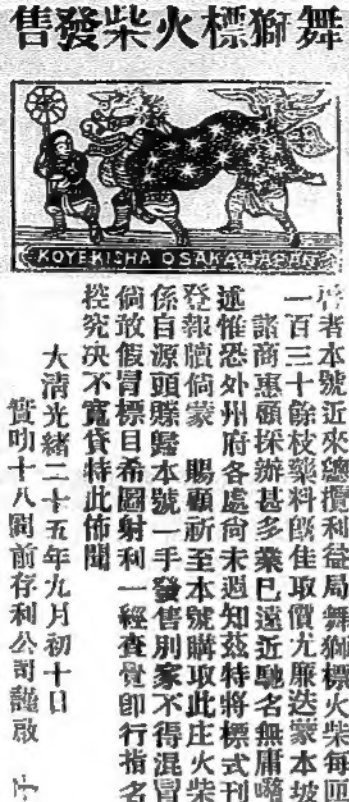 舞獅標火柴發售
KOYEKISHA OSAKA JAPAN
啓者本號近來總攬利益局舞獅標火柴每匣
一百三十餘枝藥料既佳取價尤廉迭蒙本坡
諸商惠顧採辦甚多業已遠近馳名無庸囑
述惟恐外州府各處尙未週知茲特將標式刊
登報牘倘蒙 賜顧祈至本號購取此庄火柴
係自源頭賒歸本號一手發售別家不得混冒
倘敢假冒標目希圖射利一經查覺卽行指名
控究決不寬貸特此佈聞
大清光緒二十五年九月初十日
實叻十八間前存利公司謹啟